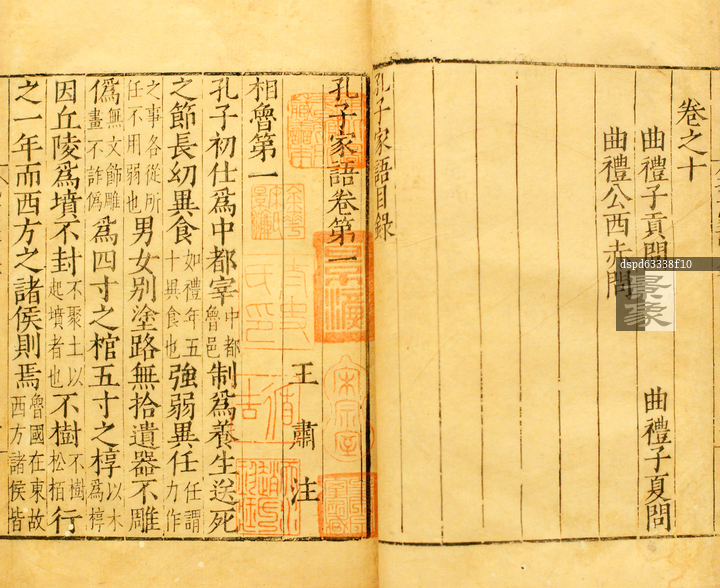 卷之十
曲禮子貢問 曲禮子夏問
曲禮公西赤問
孔子家語目錄
孔子家語卷第一
王肅注
相魯第一
孔子初仕爲中都宰中都魯邑制爲養生送死
之節長幼異食如禮年五十異食也強弱異任任謂力作
之事各從所任不用弱也男女別塗路無拾遺器不雕
僞無文飾雕畫不詐僞爲四寸之棺五寸之椁以木爲椁
因丘陵爲墳不封不聚土以起墳者也不樹不樹松栢行
之一年而西方之諸侯則焉魯國在東故西方諸侯皆
dspd63338f10